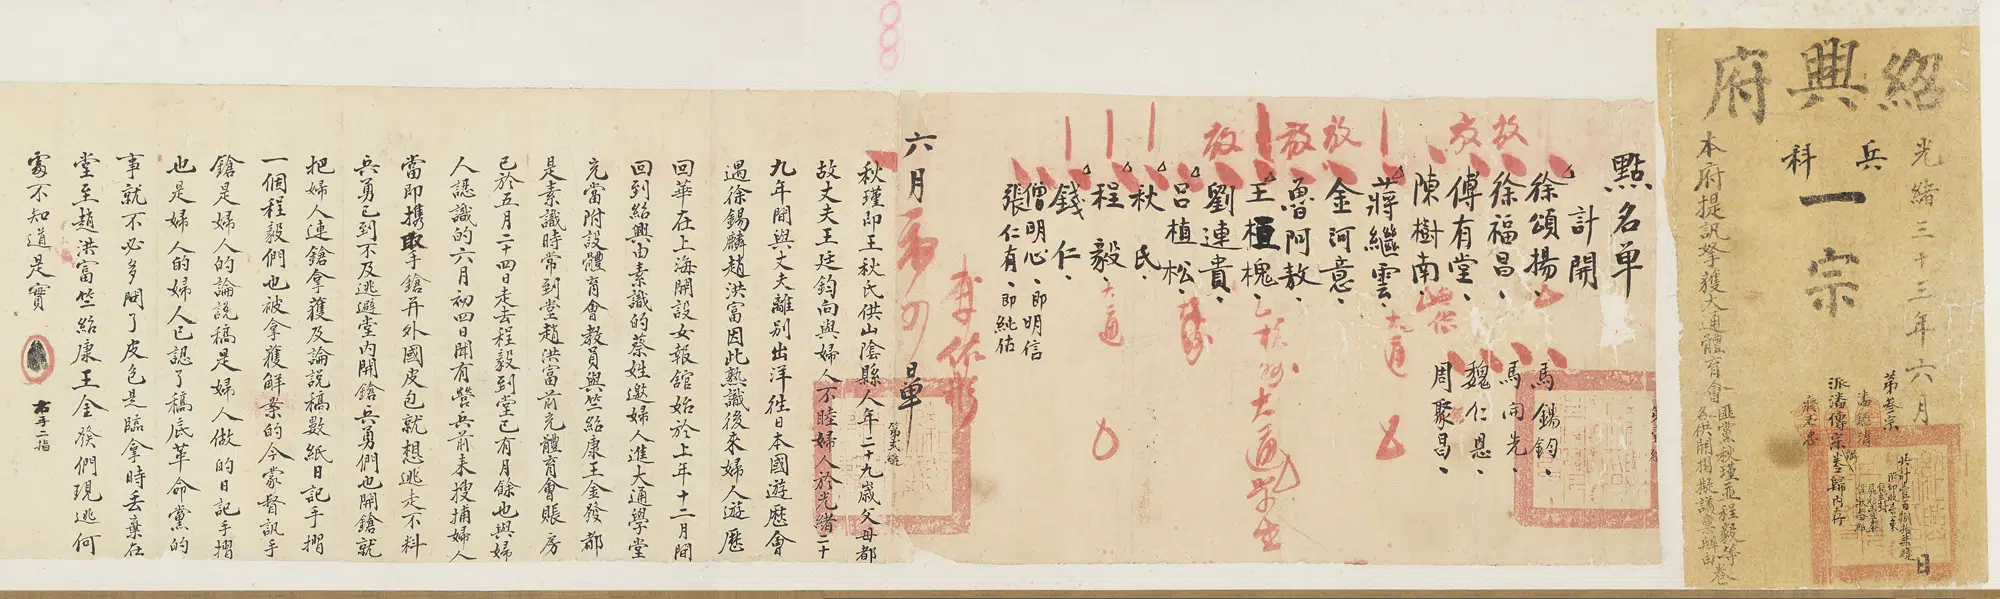 紹興府
光緒三十三年六月 日
兵科
一宗
本府提訊拏獲大通體育會匪黨秋瑾並程毅等卷
各供開摺擬議稟辦由
第叁宗
派潘傳宗卷歸內存
點名单
計開
徐頌揚、
徐福昌、
傅有堂、
陳樹南、
蔣繼雲、
金河意、
魯阿敖、
王植槐、
劉連貴、
呂植松、
秋氏、
程毅、
錢仁、
僧明心、即明信
張仁有、即純估
馬錫鈞、
馬開光、
魏仁恩、
周聚昌、
放
放
放
放
放
大通
大通
大通學生
六月初四日单
秋瑾即王秋氏供山陰縣人年二十九歲父母都
故丈夫王廷鈞向與婦人不睦婦人於光緒二十
九年間與丈夫離別出洋徃日本國遊歷會
遇徐錫麟趙洪富因此熟識後來婦人遊歷
回華在上海開設女報館始於上年十二月間
回到紹興由素識的蔡姓邀婦人進大通學堂
充當附設體育會教員與竺紹康王金發都
是素識時常到堂趙洪富前充體育會賬房
已於五月二十四日走去程毅到堂已有月餘也與婦
人認識的六月初四日聞有營兵前來搜捕婦人
當即攜取手鎗并外國皮包就想逃走不料
兵勇已到不及逃避堂內開鎗兵勇們也開鎗就
把婦人連鎗拿獲及論說稿數紙日記手摺
一個程毅們也被拿獲解案的今蒙督訊手
鎗是婦人的論說稿是婦人做的日記手摺
也是婦人的婦人已認了稿底革命黨的
事就不必多問了皮包是臨拿時丢棄在
堂至趙洪富竺紹康王金發們現逃何
處不知道是實
右手二指